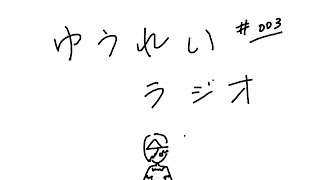 ゆうれい #003
ラジオ